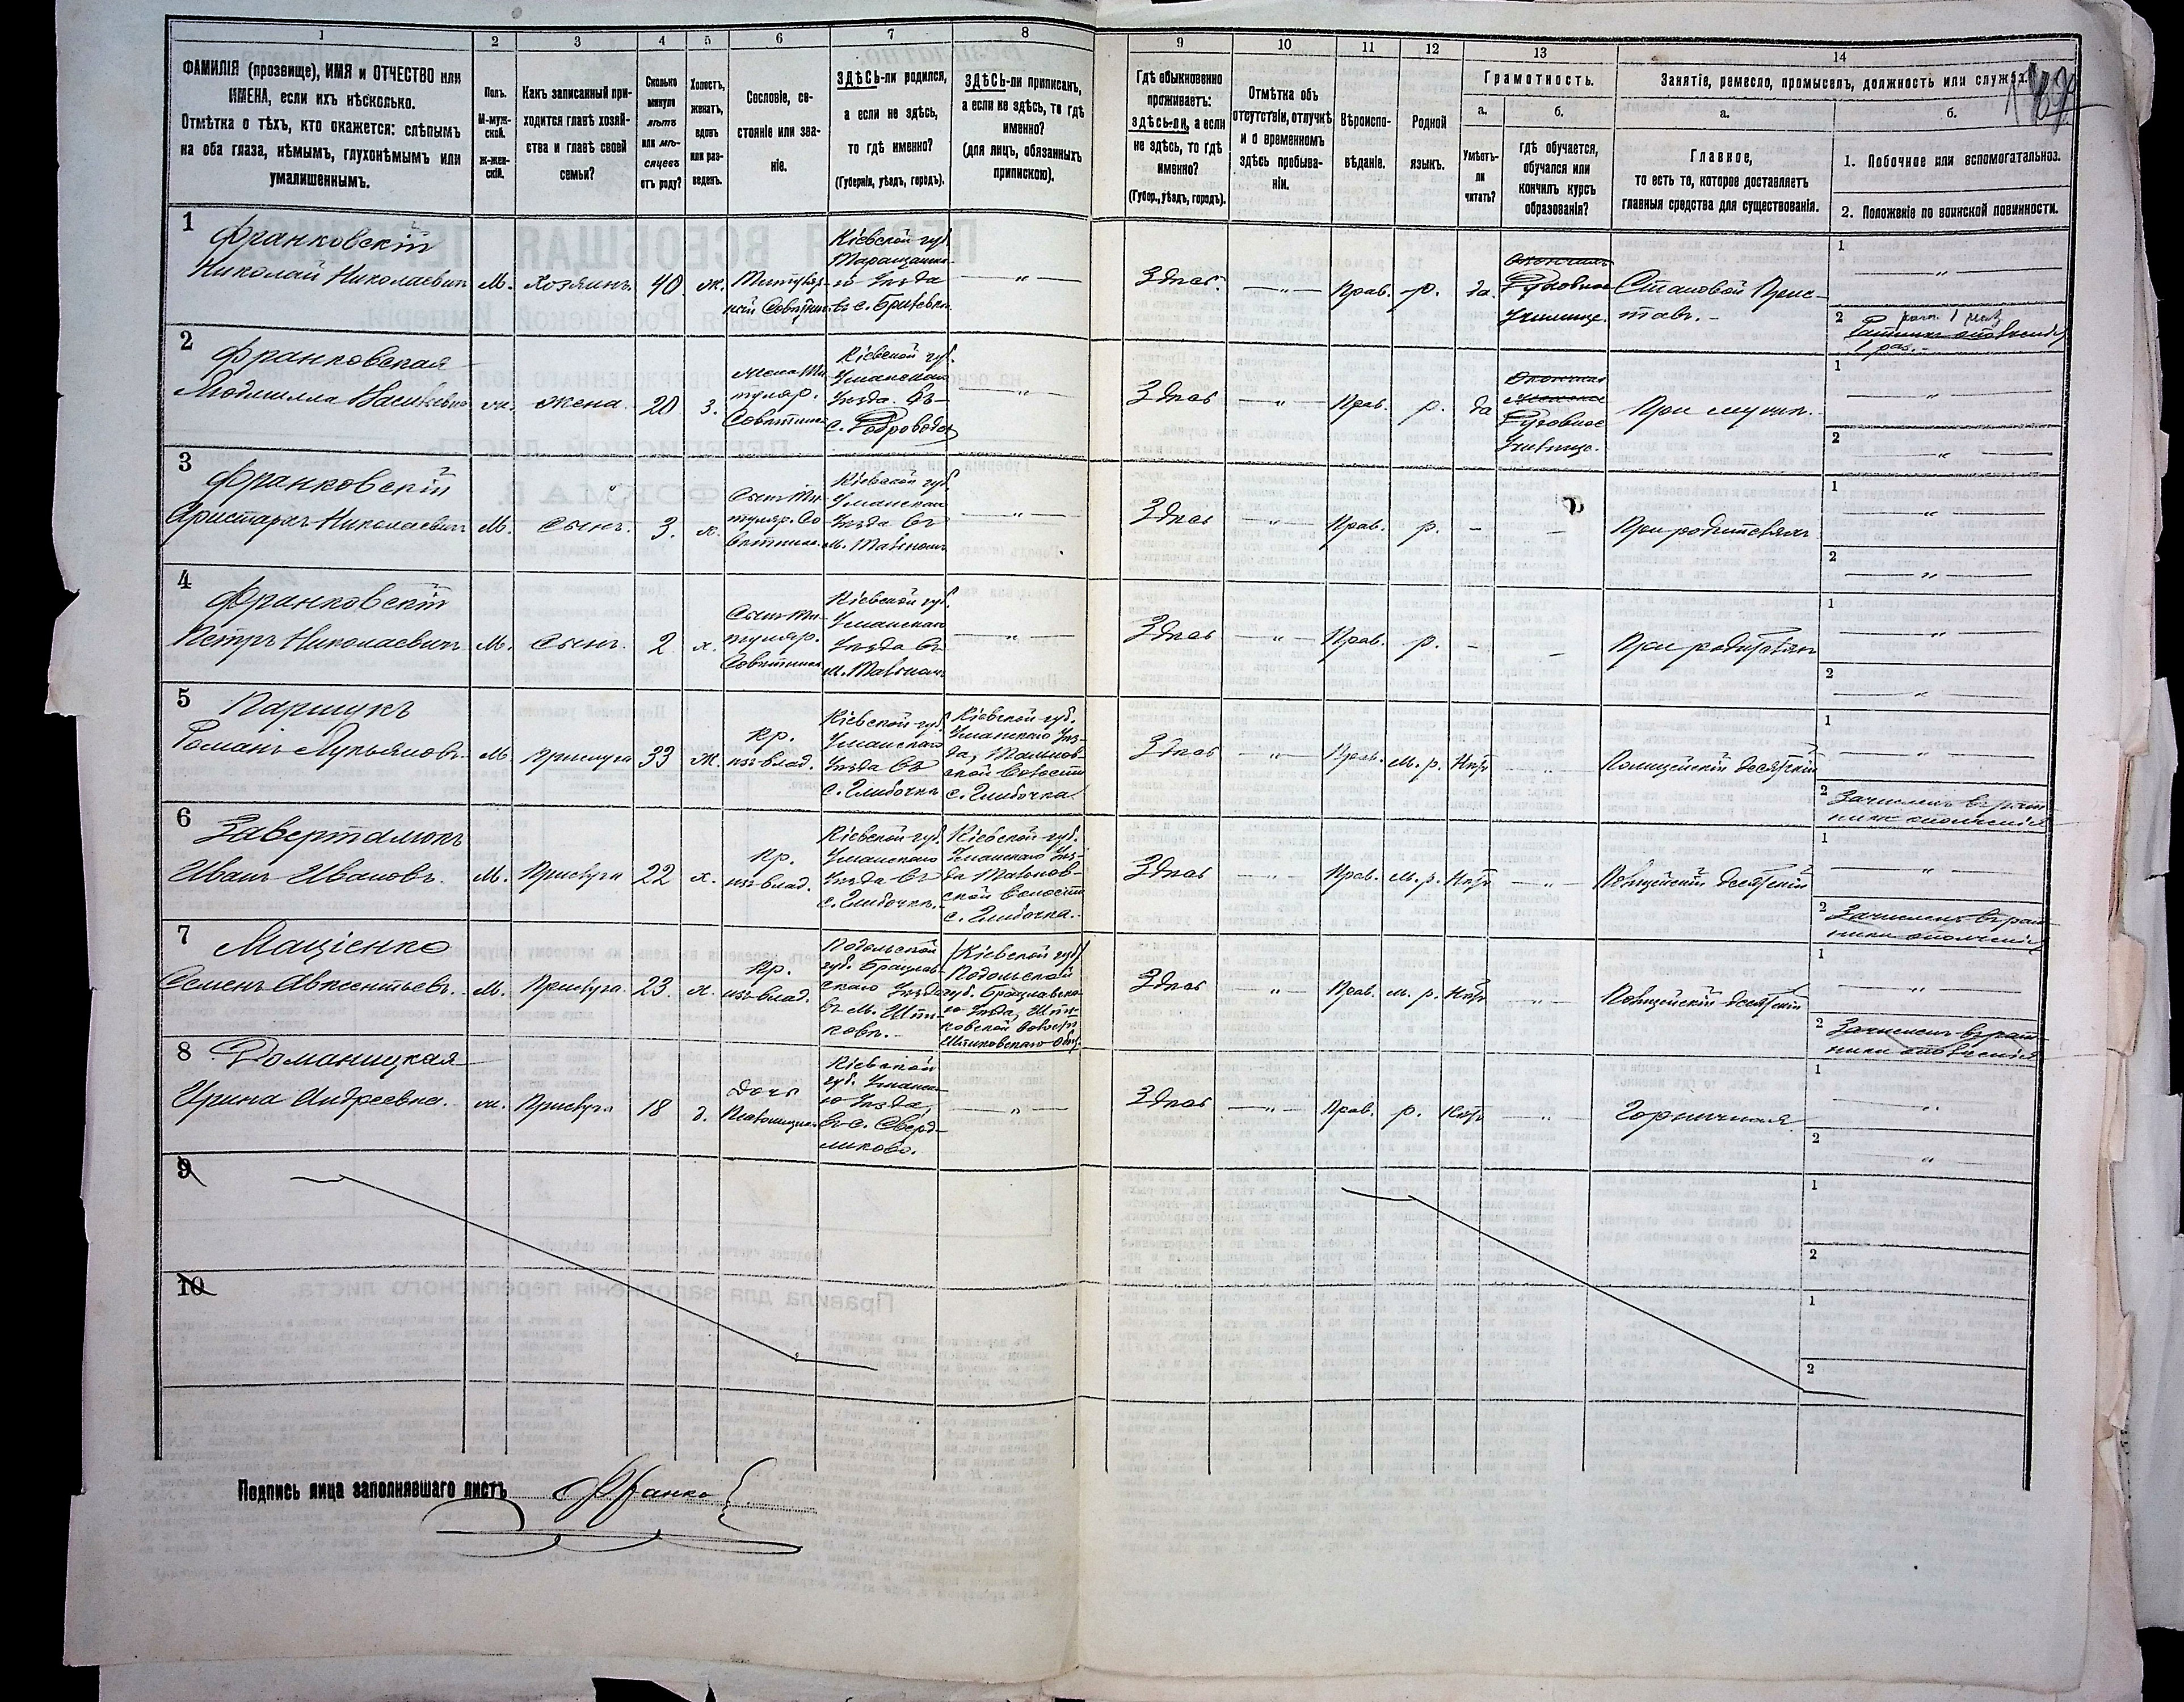 1 2 3 4 5 6 7 8 9 10 11 12 13 14
ФАМИЛІЯ (прозвище), ИМЯ и ОТЧЕСТВО или
ИМЕНА, если ихъ нѣсколько.
Отмѣтка о тѣхъ, кто окажется: слѣпымъ
на оба глаза, нѣмымъ, глухонѣмымъ или
умалишеннымъ.
Полъ.
М-муж-
ской.
ж-жен-
скій.
Какъ записанный при-
ходится главѣ хозяй-
ства и главѣ своей
семьи?
Сколько
минуло
лѣтъ
или мѣ-
сяцевъ
отъ роду?
Холостъ,
женатъ,
вдовъ
или раз-
веденъ.
Сословіе, со-
стояніе или зва-
ніе.
ЗДѢСЬ-ли родился,
а если не здѣсь,
то гдѣ именно?
(Губернія, уѣздъ, городъ).
ЗДѢСЬ-ли приписанъ,
а если не здѣсь, то гдѣ
именно?
(для лицъ, обязанныхъ
припискою).
Гдѣ обыкновенно
проживаетъ:
здѣсь-ли, а если
не здѣсь, то гдѣ
именно?
(Губор., уѣздъ, городъ).
Отмѣтка объ
отсутствіи, отлучкѣ
и о временномъ
здѣсь пребыва-
ніи.
Вѣроиспо-
вѣданіе.
Родной
языкъ.
Грамотность.
а.
Умѣетъ-
ли
читать?
б.
гдѣ обучается,
обучался или
кончилъ курсъ
образованія?
Занятіе, ремесло, промыселъ, должность или служба.
а.
Главное,
то есть то, которое доставляетъ
главныя средства для существованія.
б.
1. Побочное или вспомогательное.
2. Положеніе по воинской повинности.
1
Франковскій
Николай Николаевич
М.
Хозяинъ
40
ж.
Титуляр-
ный Совѣтник
Кіевской губ.
Таращанска-
го Уѣзда
— „ —
Здѣсь
— „ —
Прав.
р.
да
Окончилъ
Духовное
Училище.
Становой Прис-
тавъ.
1
— „ —
2
1 раз.
2
Франковская
Людмилла
ж.
Жена
20
з.
Жена Ти-
туляр.
Совѣтника
Кіевской губ.
Уманскаго
Уѣзда. Въ
— „ —
Здѣсь
— „ —
Прав.
р.
да
Духовное
Училище.
При мужѣ.
1
— „ —
2
— „ —
3
Франковскій
Аристархъ Николаевич
М.
Сынъ
3.
х.
Сынъ Ти-
туляр. Со
вѣтника
Кіевской губ.
Уманскаго
Уѣзда въ
м. Тальномъ
— „ —
Здѣсь
— „ —
Прав.
р.
–
–
При родителяхъ
1
— „ —
2
— „ —
4
Франковскій
Петръ Николаевич
М.
Сынъ
2
х.
Сынъ Ти-
туляр.
Совѣтника
Кіевской губ.
Уманскаго
Уѣзда въ
м. Тальномъ
— „ —
Здѣсь
— „ —
Прав.
р.
–
–
При родителяхъ
1
— „ —
2
— „ —
5
Паршукъ
Романъ Лукьяновъ
М
Прислуга
33
ж.
Кр.
изъ влад.
Кіевской губ.
Уманскаго
Уѣзда въ
с. Глибочка
Кіевской губ.
Уманскаго Уѣз-
да, Тальнов-
ской Волости
с. Глибочка
Здѣсь
— „ —
Прав.
м. р.
Нѣтъ
— „ —
Полицейскій десятскій
1
— „ —
2
Зачисленъ въ рат-
ники ополченія
6
Завертамокъ
Иванъ Ивановъ.
М.
Прислуга
22
х.
Кр.
изъ влад.
Кіевской губ.
Уманскаго
Уѣзда въ
с. Глибочкѣ.
Кіевской губ.
Уманскаго Уѣз-
да Тальнов-
ской Волости
с. Глибочка.
Здѣсь
— „ —
Прав.
м. р.
Нѣтъ
— „ —
Полицейскій десятскій
1
— „ —
2
Зачисленъ въ рат-
ники ополченія
7
Мащенко
Семенъ Авксентьевъ.
М.
Прислуга
23.
х.
Кр.
изъ влад.
Подольской
губ. Брацлав-
скаго Уѣзда
въ м. Шпи-
ковѣ.
(Кіевской губ)
Подольской
губ. Брацлавска-
го Уѣзда, Шпи-
ковской Волости
Шпиковскаго общ.
Здѣсь
— „ —
Прав.
м. р.
Нѣтъ
— „ —
Полицейскій десятскій
1
— „ —
2
Зачисленъ въ рат-
ники ополченія
8
Романицкая
Ирина Андреевна.
ж.
Прислуга
18
д.
Дочь
Псаломщика
Кіевской
губ. Уманска-
го Уѣзда,
въ с. Сверд-
ликово.
— „ —
Здѣсь
— „ —
Прав.
р.
Нѣтъ
— „ —
Горничная
1
— „ —
2
— „ —
9
1
2
10
1
2
Подпись лица заполнявшаго листъ